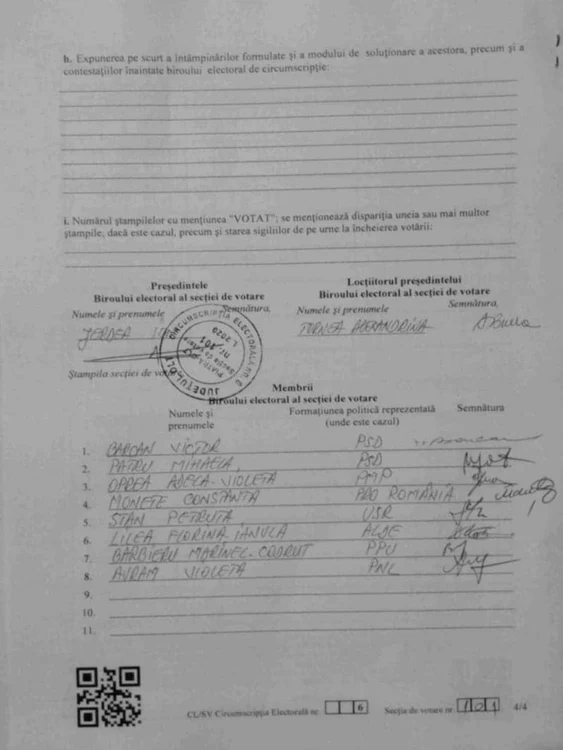 h. Expunerea pe scurt a întâmpinărilor formulate şi a modului de soluţionare a acestora, precum şi a
contestaţiilor înaintate biroului electoral de circumscripţie:
i. Numărul ştampilelor cu menţiunea "VOTAT"; se menţionează dispariţia uneia sau mai multor
ştampile, dacă este cazul, precum şi starea sigiliilor de pe urne la încheierea votării:
Preşedintele
Biroului electoral al secţiei de votare
Numele şi prenumele Semnătura,
Locţiitorul preşedintelui
Biroului electoral al secţiei de votare
Numele şi prenumele Semnătura,
ALEXANDRINA
Ştampila secţiei de
CIRCUMSCRIPŢIA ELECTORALĂ NR. 6
JUDEŢUL OLT
Membrii
Biroului electoral al secţiei de votare
Numele şi prenumele Formaţiunea politică reprezentată (unde este cazul) Semnătura
1. VICTOR PSD
2. PATRU MIHAELA PSD
3. OPREA ADELA-VIOLETA PMP
4. MONETE CONSTANTA PRO ROMÂNIA
5. STAN PETRUTA USR
6. LILEA FLORINA IANULA ALDE
7. BĂRBIERU MARINEL-CODRUT PPU
8. AVRAM VIOLETA PNL
9.
10.
11.
CL/SV Circumscripţia Electorală nr. 6 Secţia de votare nr. 101 4/4